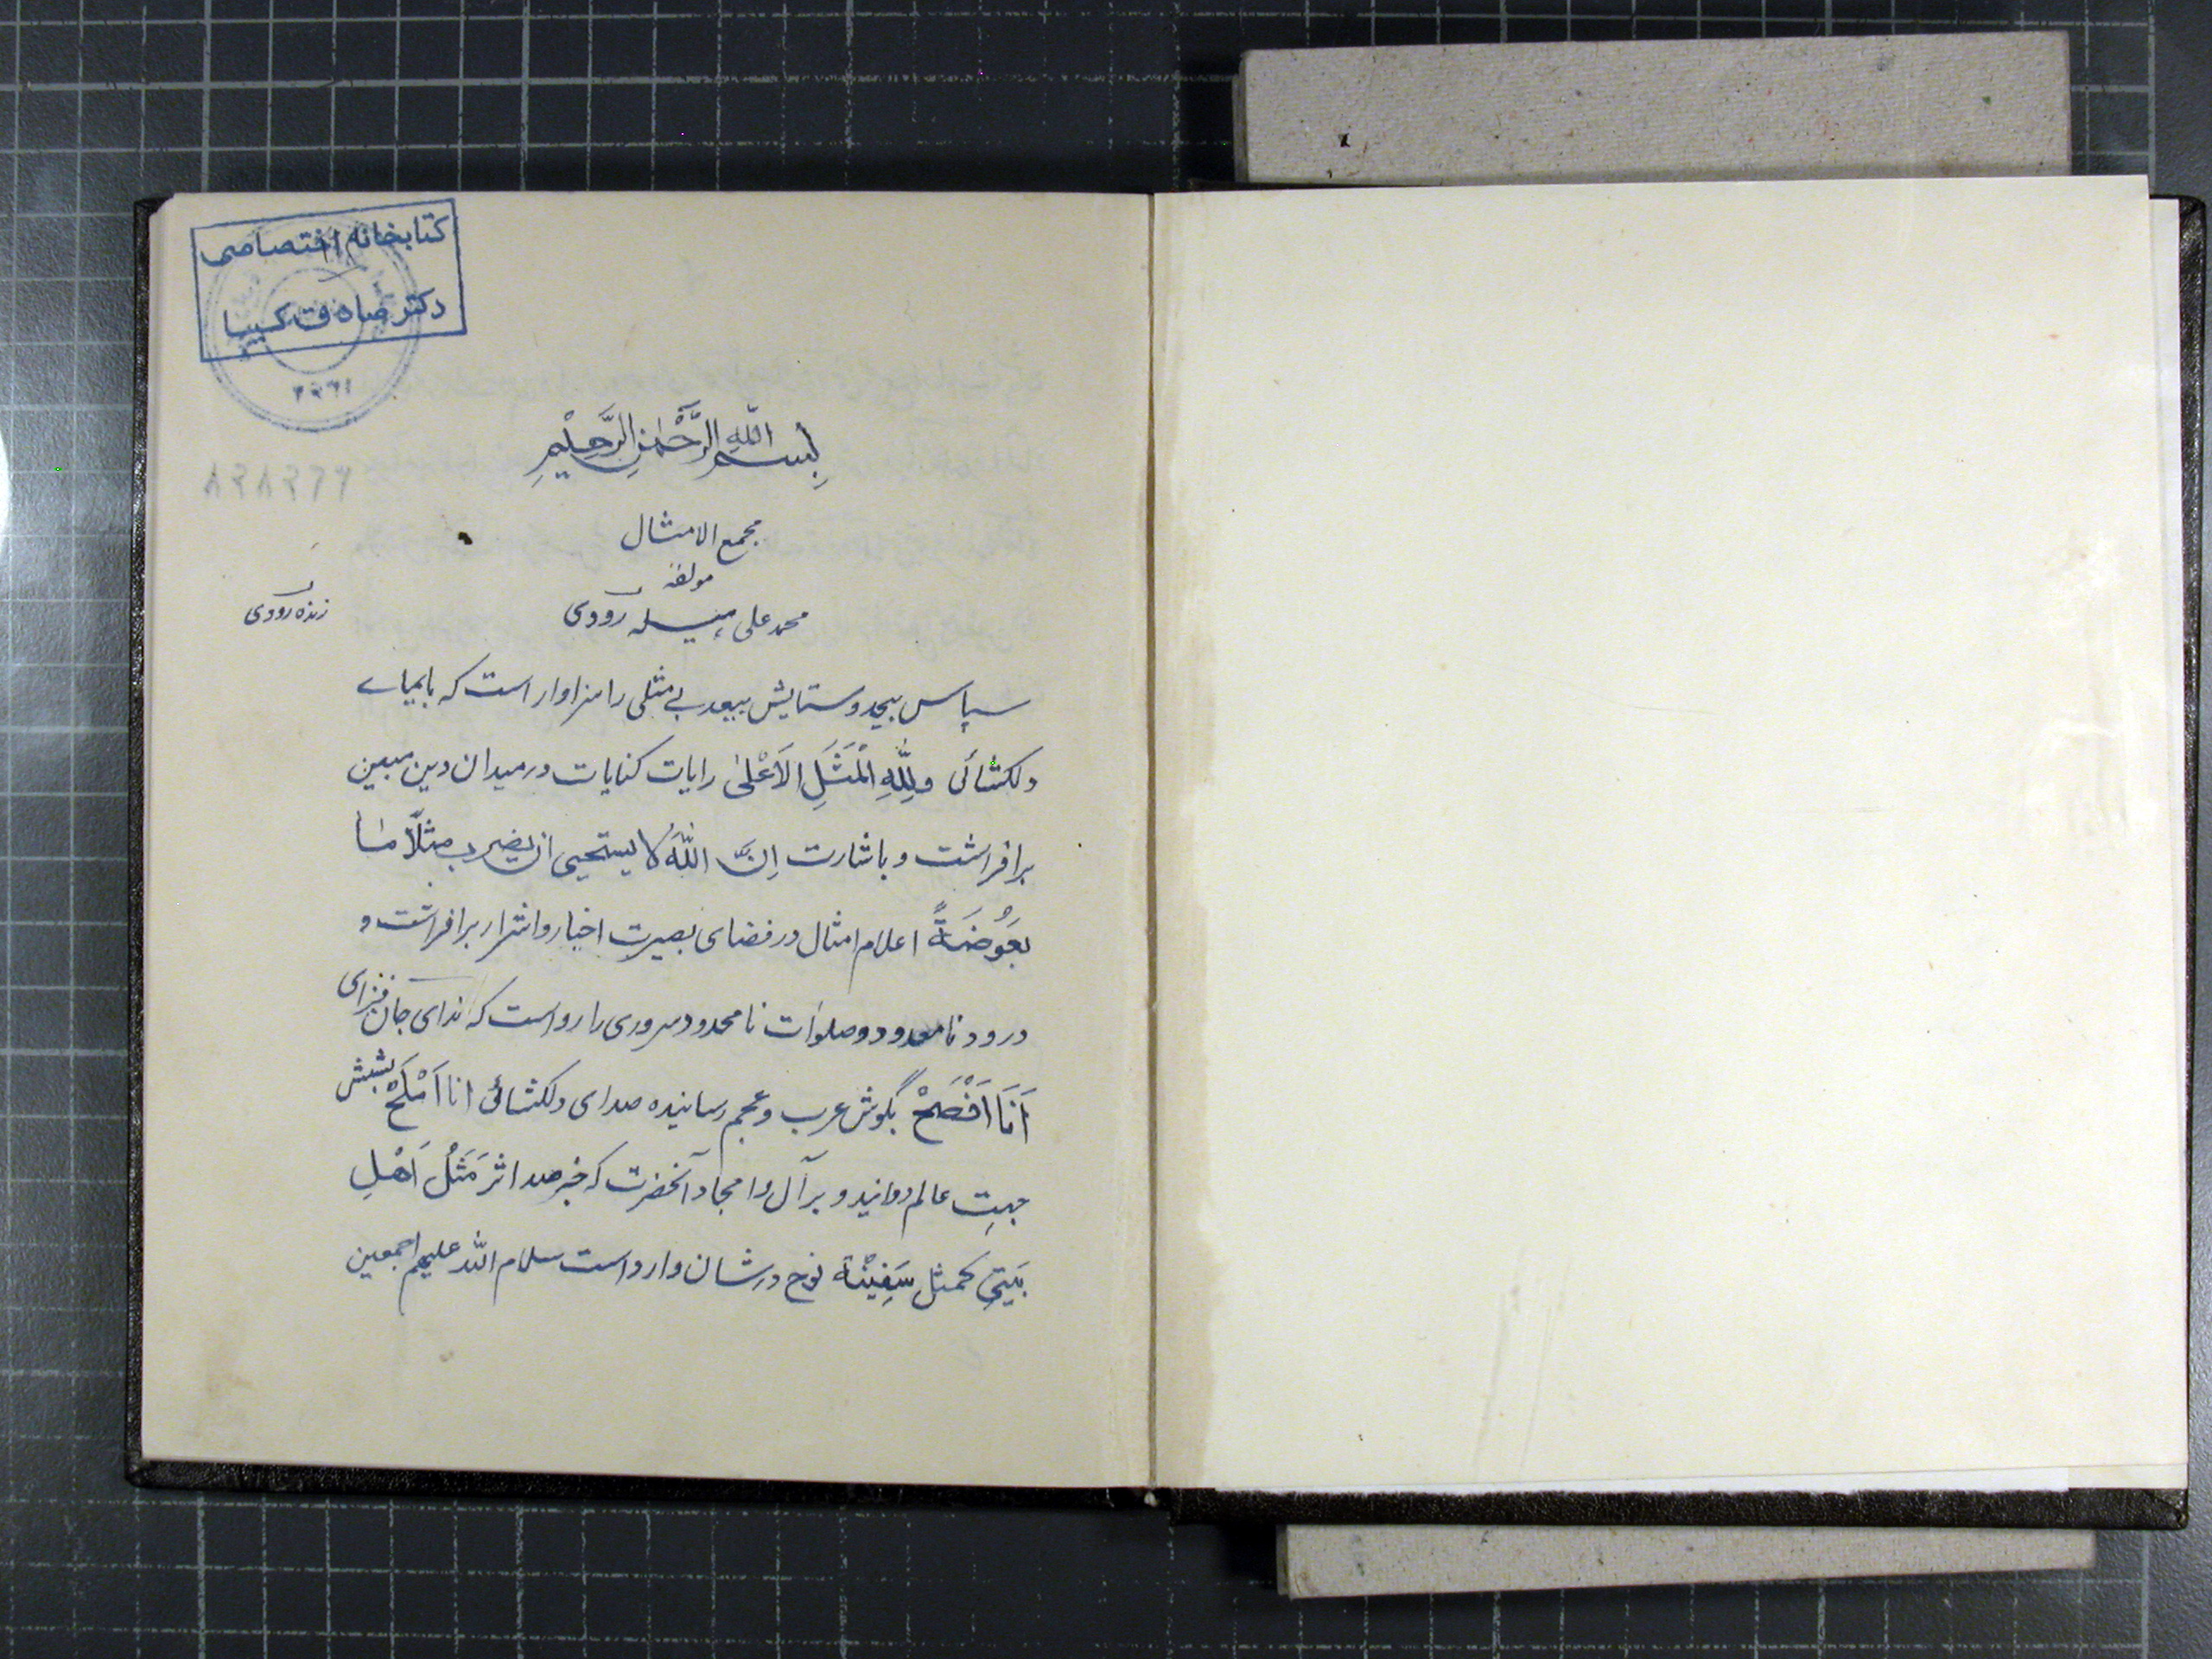 کتابخانه اختصاصی
دکتر صادق کیا
بِسْمِ اللّهِ الرَّحْمٰنِ الرَّحِیْمِ
مجمع الامثال
مولفه
محمد علی رودی
زنده رودی
سپاس بیحد و ستایش بیعد بی مثلی را سزاوار است که بایمای
دلکشائی وَلِلّٰهِ الْمَثَلِ الاَعْلیٰ رایات کنایات در میدان دین مبین
برافراشت و باشارت اِنَّ اللّٰهَ لا یستحیی ان یضرب مثلًا مٰا
بَعُوضَةً اعلام امثال در فضای بصیرت اخیار و اشرار برافراشت و
درود نامعدود و صلوات نامحدود سروری را رواست که ندای جان فزای
اَنَا اَفْصَحْ بگوش عرب و عجم رسانیده صدای دلکشائی انا اَمْلَحْ بشش
جهتِ عالم دوانید و بر آل و امجاد آنحضرت که خبر صد اثر مَثَلُ اَهْلِ
بَیتِی کمثل سَفِیْنَة نوح در شان وارد است سلام الله علیهم اجمعین